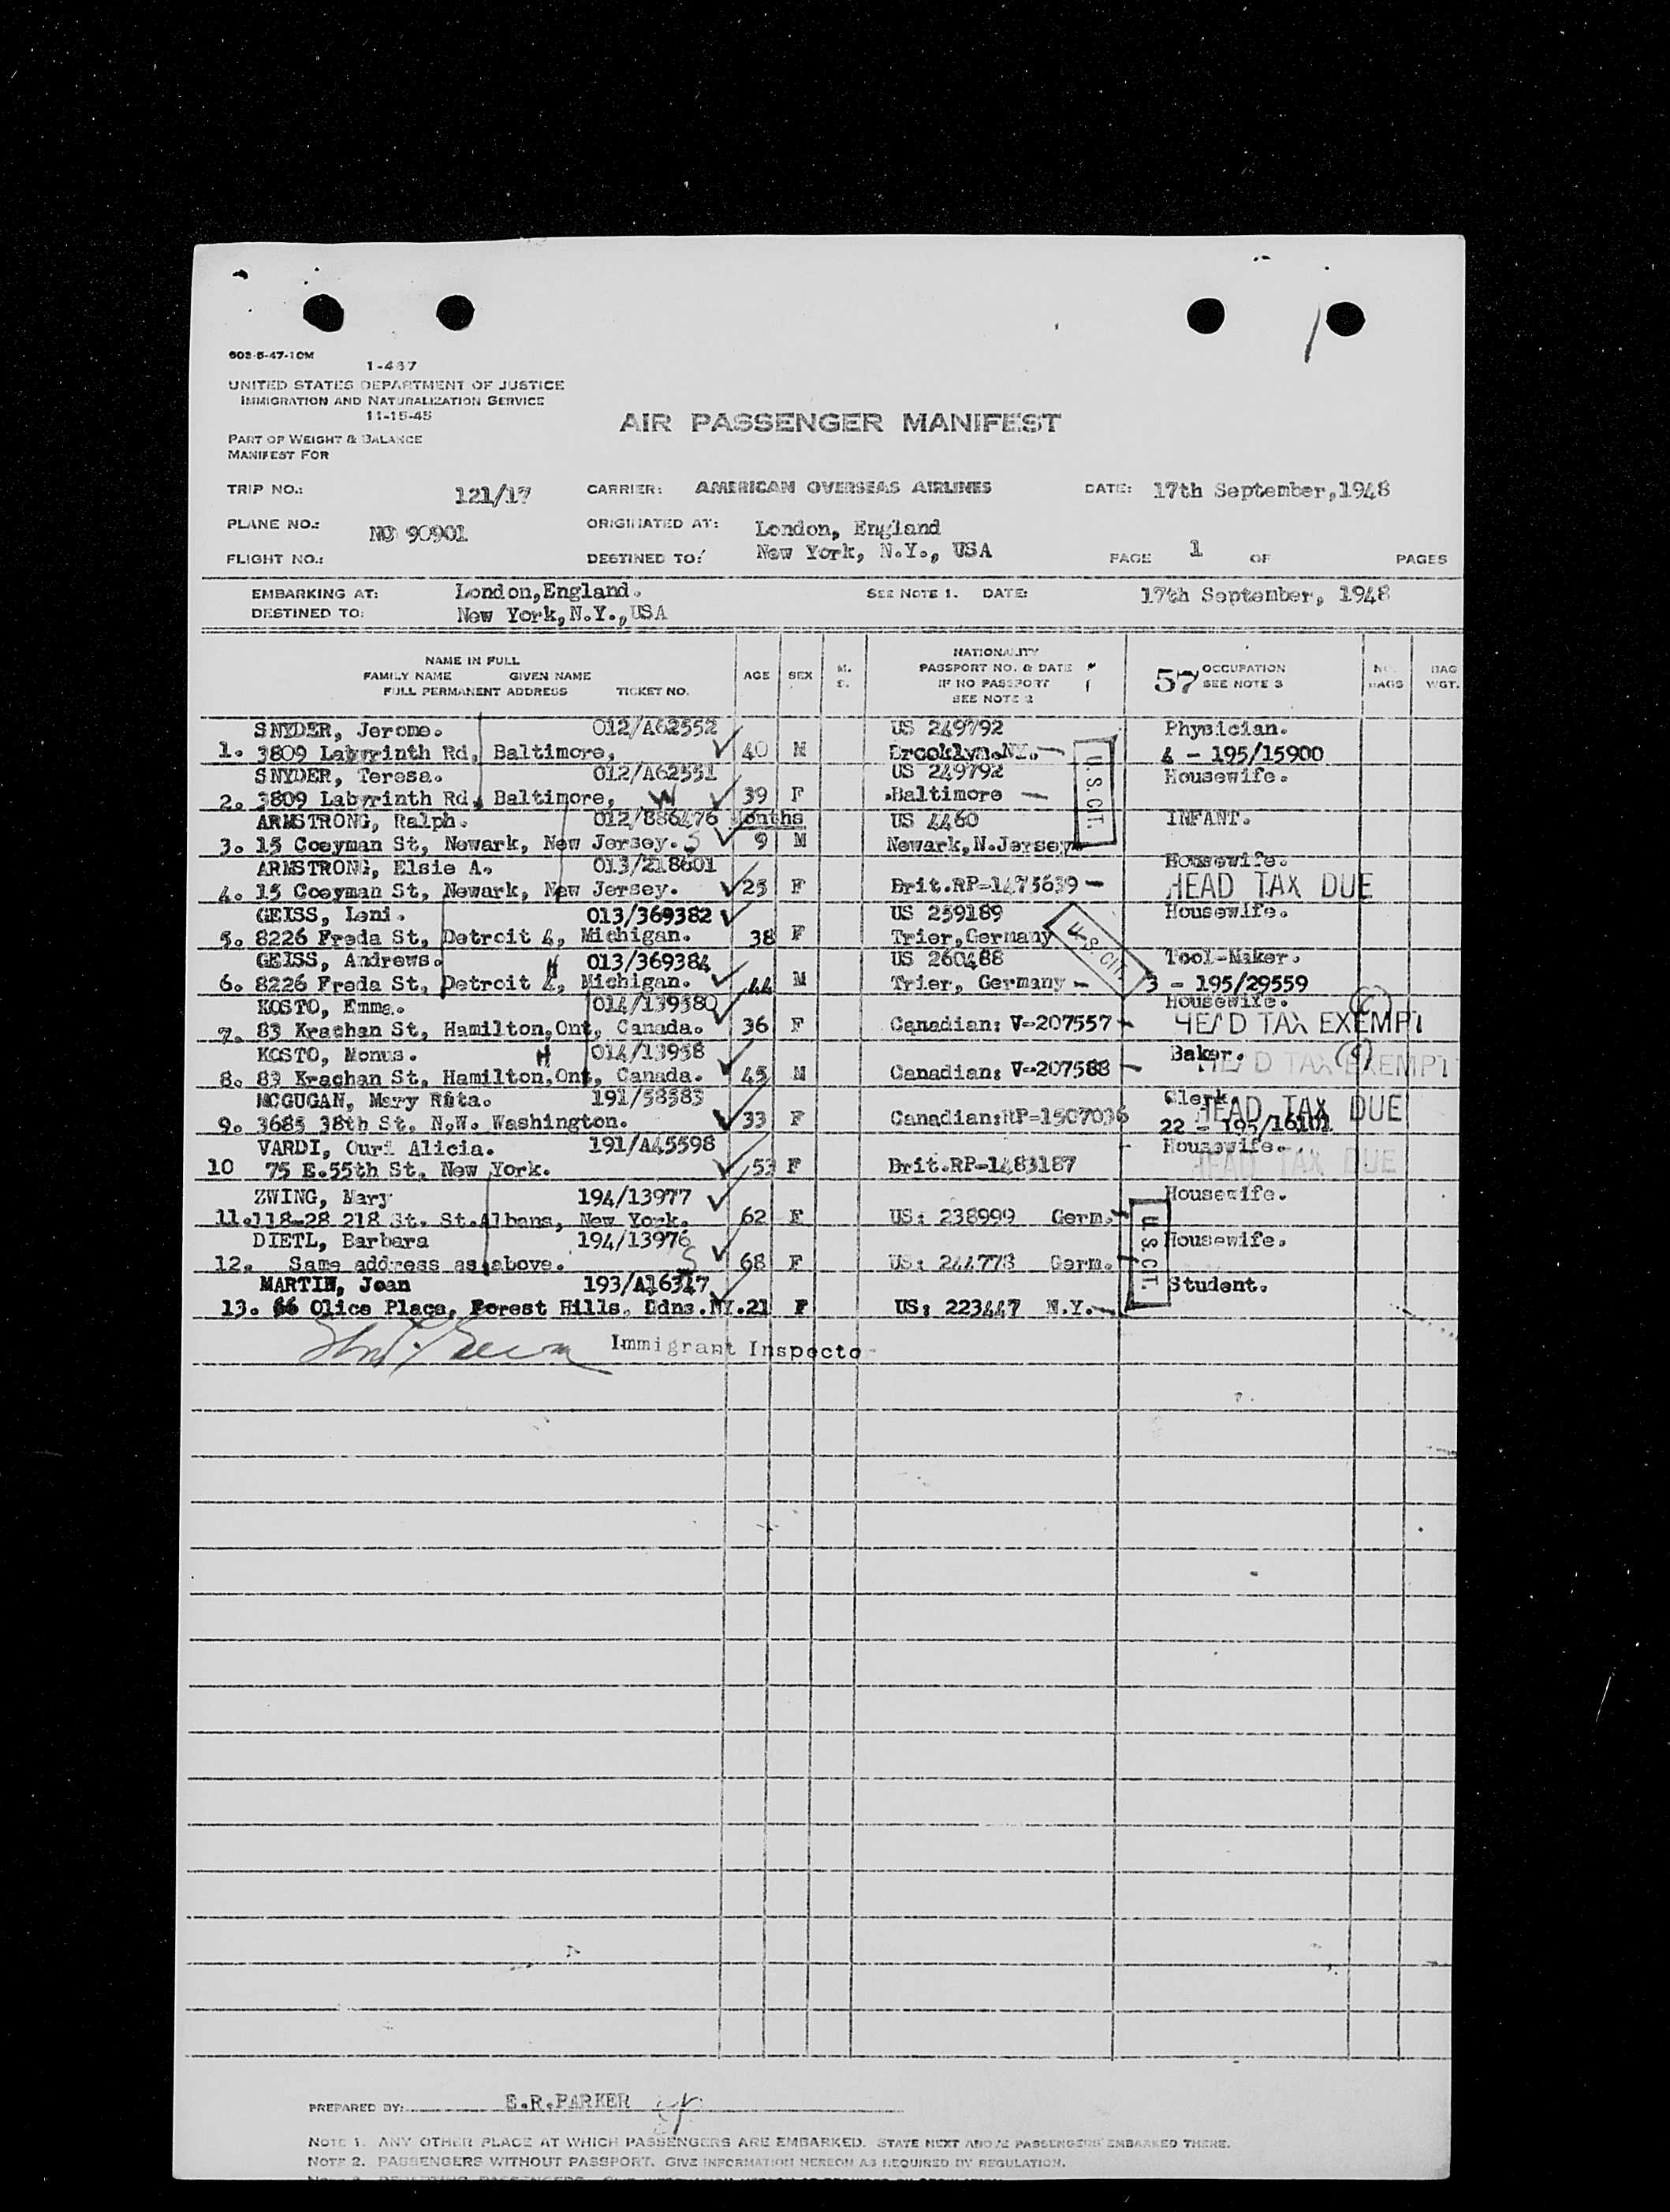 603-5-47-10M
1-467
UNITED STATES DEPARTMENT OF JUSTICE
IMMIGRATION AND NATURALIZATION SERVICE
11-15-45
AIR PASSENGER MANIFEST
PART OF WEIGHT & BALANCE
MANIFEST FOR
TRIP NO.: 121/17 CARRIER: AMERICAN OVERSEAS AIRLINES DATE: 17th September,1948
PLANE NO.: NC 90901 ORIGINATED AT: London, England
FLIGHT NO.: DESTINED TO: New York, N.Y., USA PAGE 1 OF PAGES
EMBARKING AT: London,England. SEE NOTE 1. DATE: 17th September, 1948
DESTINED TO: New York,N.Y.,USA
NAME IN FULL
FAMILY NAME GIVEN NAME
FULL PERMANENT ADDRESS TICKET NO.
AGE SEX M. S.
NATIONALITY
PASSPORT NO. & DATE
IF NO PASSPORT
SEE NOTE 2
57 OCCUPATION
SEE NOTE 3
NO. BAGS BAG WGT.
SNYDER, Jerome. 012/A62552 US 249792 Physician.
1. 3809 Labyrinth Rd, Baltimore, 40 M Brooklyn.NY. 4 - 195/15900
SNYDER, Teresa. 012/A62551 US 249792 Housewife.
2. 3809 Labyrinth Rd, Baltimore, W 39 F Baltimore
U.S. CIT.
ARMSTRONG, Ralph. 012/886476 Months US 4460 INFANT.
3. 15 Coeyman St, Newark, New Jersey. S 9 M Newark,N.Jersey
ARMSTRONG, Elsie A. 013/218601 Housewife.
4. 15 Coeyman St, Newark, New Jersey. 25 F Brit.RP-1475639 HEAD TAX DUE
GEISS, Leni. 013/369382 US 259189 Housewife.
5. 8226 Freda St, Detroit 4, Michigan. 38 F Trier,Germany
U.S. CIT.
GEISS, Andrews. 013/369384 US 260488 Tool-Maker.
6. 8226 Freda St, Detroit 4, Michigan. 44 M Trier, Germany 3 - 195/29559
KOSTO, Emma. 014/139580 Housewife.
7. 83 Krachan St, Hamilton,Ont, Canada. 36 F Canadian: V-207557 HEAD TAX EXEMPT
KOSTO, Monus. 014/13958 Baker.
8. 83 Krachan St, Hamilton,Ont, Canada. 45 M Canadian: V-207588 HEAD TAX EXEMPT
MCGUGAN, Mary Rita. 191/58583 Clerk.
9. 3685 38th St. N.W. Washington. 33 F Canadian:RP-1507036 22 - 195/16101 HEAD TAX DUE
VARDI, Ouri Alicia. 191/A45598 Housewife.
10 75 E.55th St, New York. 53 F Brit.RP-1483187 HEAD TAX DUE
ZWING, Mary 194/13977 Housewife.
11.118-28 218 St. St.Albans, New York. 62 F US: 238999 Germ.
DIETL, Barbara 194/13976 Housewife.
12. Same address as above. S 68 F US: 244773 Germ.
U.S. CIT.
MARTIN, Joan 193/A16347 Student.
13. 66 Olice Place, Forest Hills, Gdns.NY. 21 F US: 223447 N.Y.
Immigrant Inspector
PREPARED BY: E.R.PARKER
NOTE 1. ANY OTHER PLACE AT WHICH PASSENGERS ARE EMBARKED. STATE NEXT ABOVE PASSENGERS EMBARKED THERE.
NOTE 2. PASSENGERS WITHOUT PASSPORT. GIVE INFORMATION HEREON AS REQUIRED BY REGULATION.